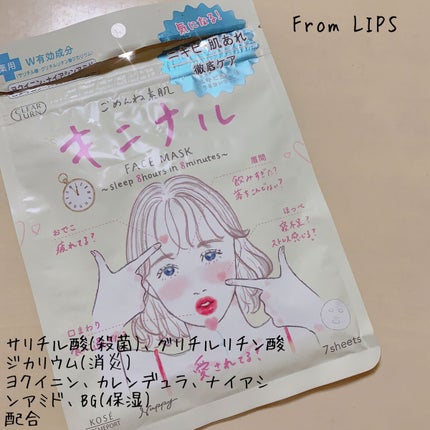 From LIPS
薬用
W有効成分
気になる!
ニキビ・肌あれ
徹底ケア
CLEAR TURN
ごめんね素肌
キニナル
FACE MASK
~sleep 8hours in 8minutes~
眉間
飲みすぎた?
おでこ
疲れてる?
ほっぺ
寝不足?
ストレス感じる?
口まわり
愛されてる?
サリチル酸(殺菌)、グリチルリチン酸
ジカリウム(消炎)
ヨクイニン、カレンデュラ、ナイアシ
ンアミド、BG(保湿)
配合
7sheets
Happy
KOSÉ